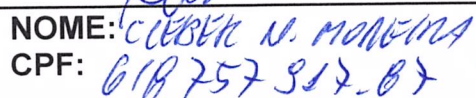 NOME: CLEBER N. MOREIRA
CPF: 618 757 917-87